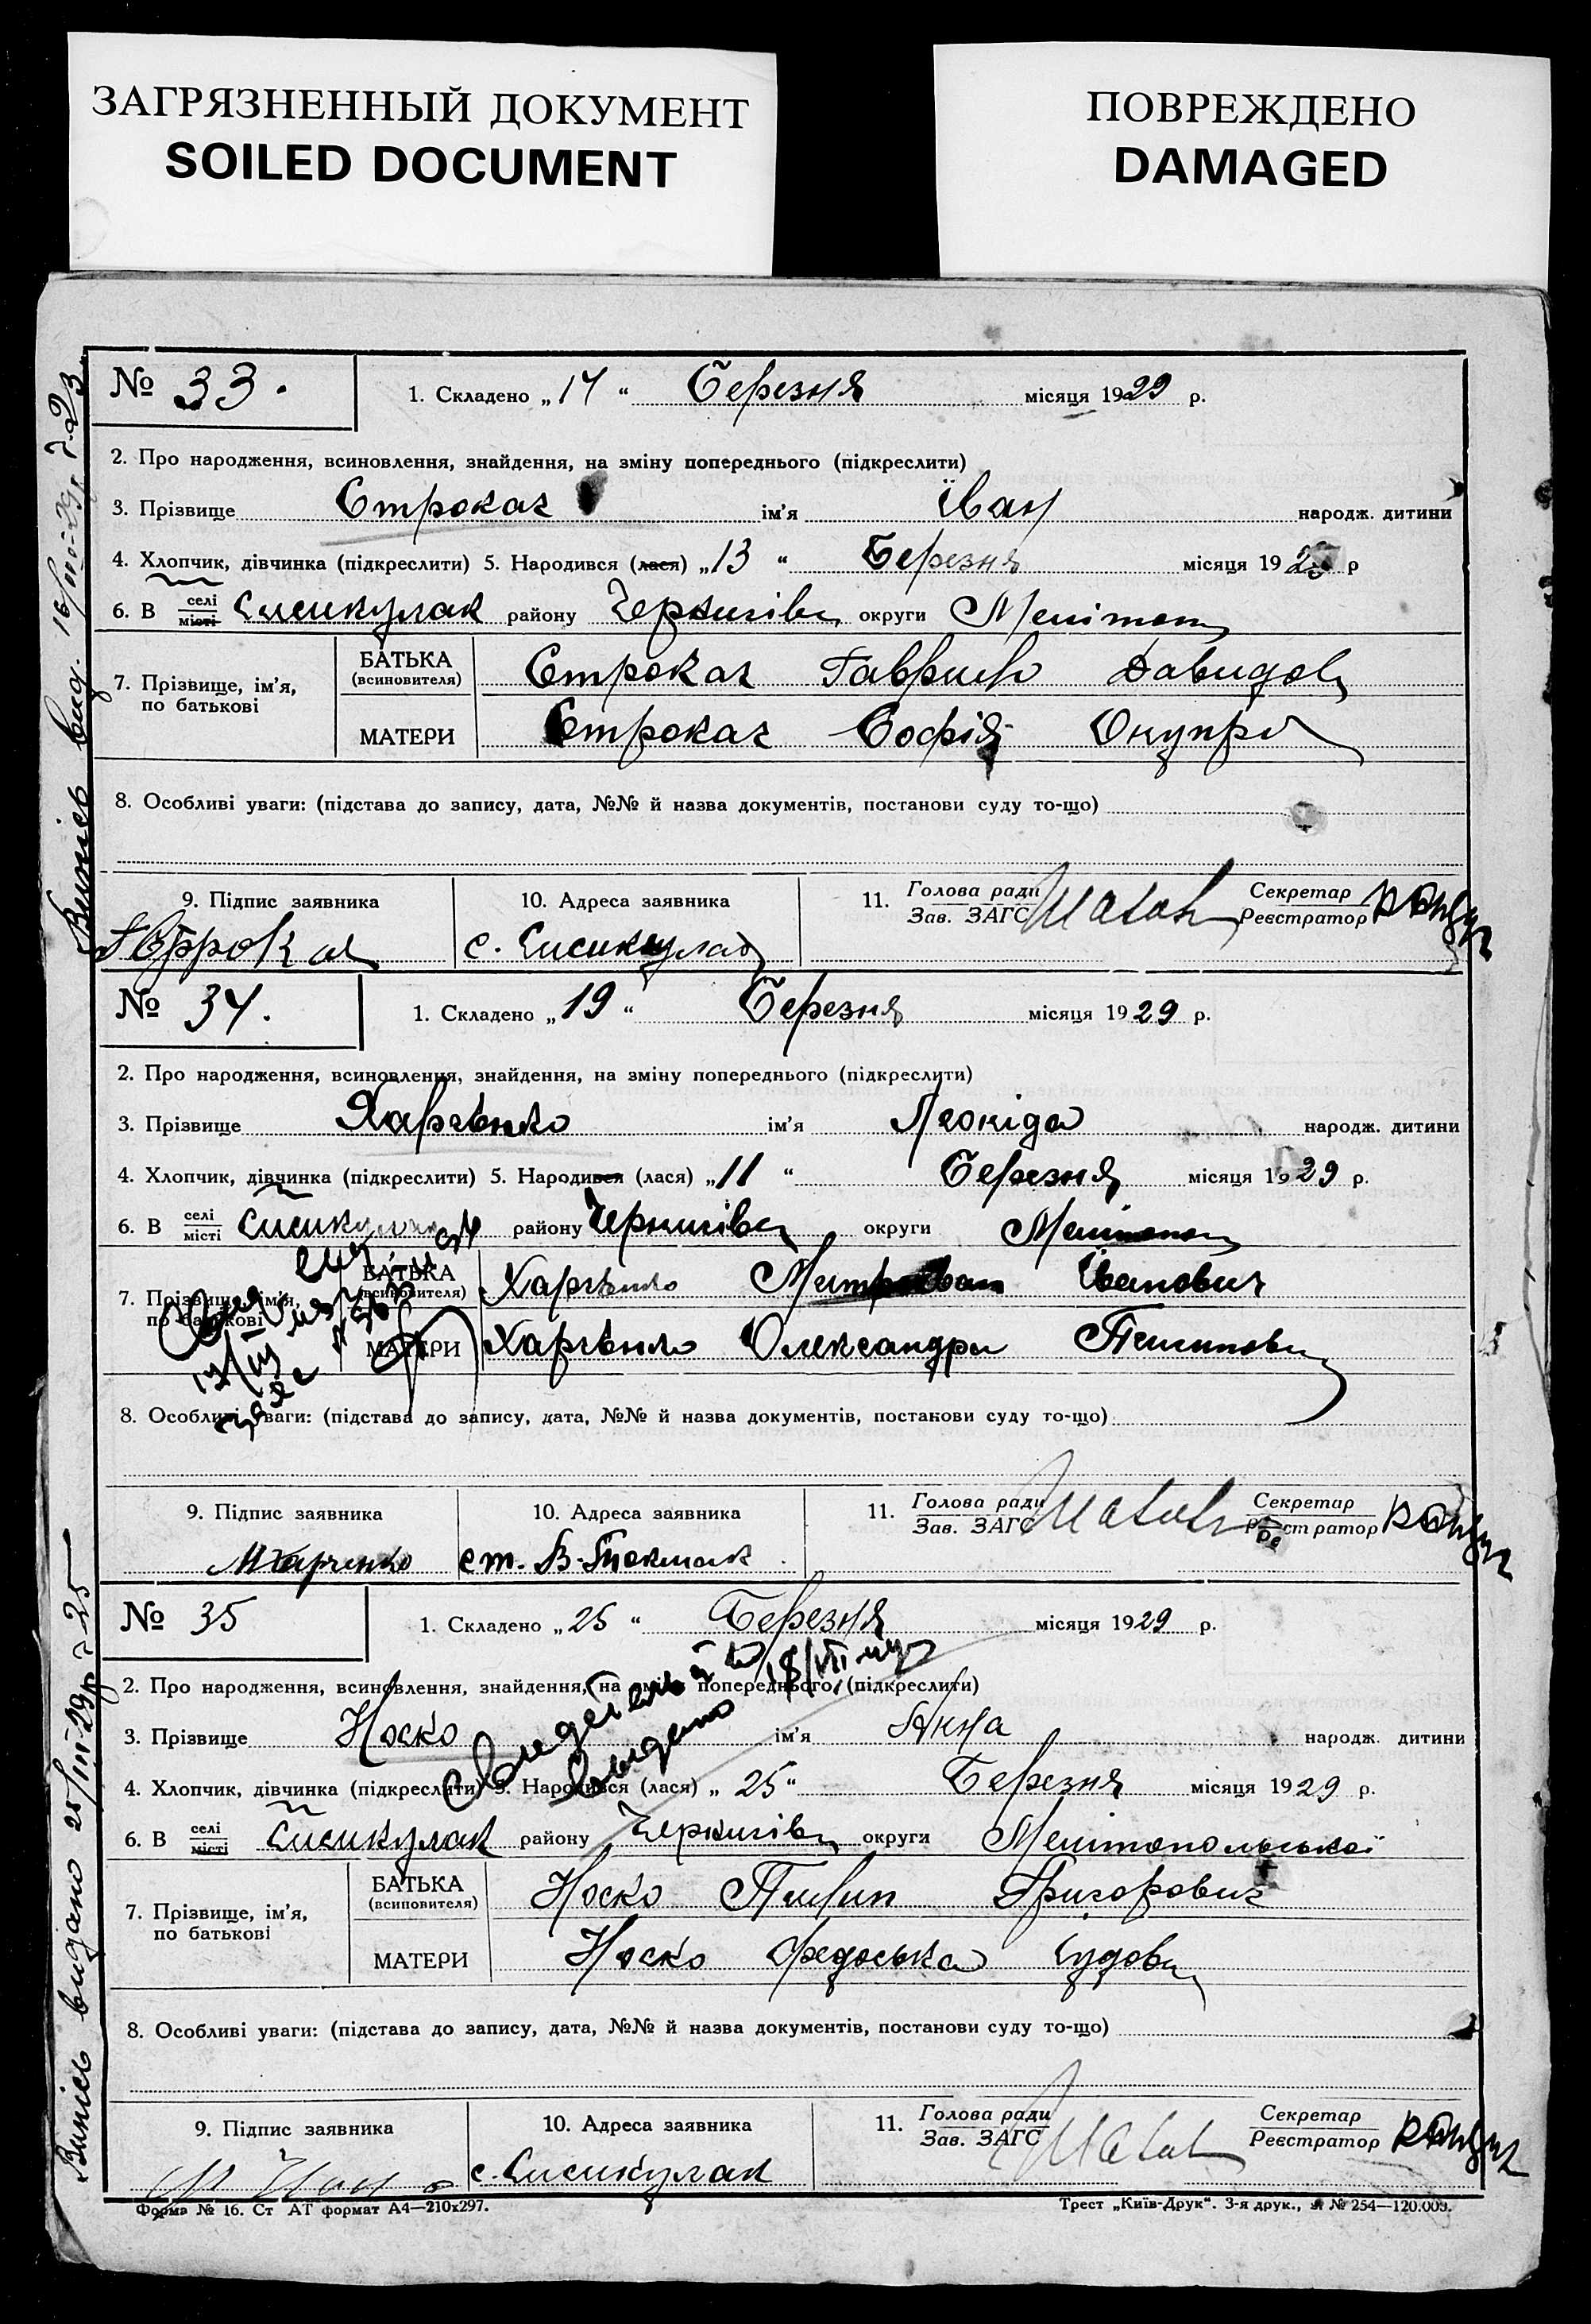 ЗАГРЯЗНЕННЫЙ ДОКУМЕНТ
SOILED DOCUMENT
ПОВРЕЖДЕНО
DAMAGED
№ 33.
1. Складено „ 14 “ Березня місяця 1929 р.
2. Про народження, всиновлення, знайдення, на зміну попереднього (підкреслити)
3. Прізвище Строкач ім'я Іван народж. дитини
4. Хлопчик, дівчинка (підкреслити) 5. Народився (лася) „ 13 “ Березня місяця 19 р
6. В селі місті Єисикулак району Чернигівс округи Мелітоп
7. Прізвище, ім'я, по батькові
БАТЬКА (всиновителя) Строкач Гаврило Давидов
МАТЕРИ Строкач Софія Онупрі
8. Особливі уваги: (підстава до запису, дата, №№ й назва документів, постанови суду то-що)
9. Підпис заявника
10. Адреса заявника
11. Голова ради Зав. ЗАГС
Секретар Реєстратор
с. Єисикулак
Випись вид. 16/III-29р.
№ 34.
1. Складено „ 19 “ Березня місяця 1929 р.
2. Про народження, всиновлення, знайдення, на зміну попереднього (підкреслити)
3. Прізвище Харченко ім'я Леоніда народж. дитини
4. Хлопчик, дівчинка (підкреслити) 5. Народився (лася) „ 11 “ Березня місяця 1929 р.
6. В селі місті Єисикулак району Чернигівс округи Мелітоп
7. Прізвище, ім'я, по батькові
БАТЬКА (всиновителя) Харченко Митрофан Іванович
МАТЕРИ Харченко Олександра Пилипов
8. Особливі уваги: (підстава до запису, дата, №№ й назва документів, постанови суду то-що)
9. Підпис заявника
10. Адреса заявника
11. Голова ради Зав. ЗАГС
Секретар Реєстратор
М Харченко
ст. В-Токмак
№ 35
1. Складено „ 25 “ Березня місяця 1929 р.
2. Про народження, всиновлення, знайдення, на зміну попереднього (підкреслити)
3. Прізвище Носко ім'я Анна народж. дитини
4. Хлопчик, дівчинка (підкреслити) 5. Народився (лася) „ 25 “ Березня місяця 1929 р.
6. В селі місті Єисикулак району Чернигівс округи Мелітопольської
7. Прізвище, ім'я, по батькові
БАТЬКА (всиновителя) Носко Пилип Григорович
МАТЕРИ Носко Федоська
8. Особливі уваги: (підстава до запису, дата, №№ й назва документів, постанови суду то-що)
9. Підпис заявника
10. Адреса заявника
11. Голова ради Зав. ЗАГС
Секретар Реєстратор
с. Єисикулак
Випись видано 25/III-29р
Форма № 16. Ст АТ формат А4—210х297.
Трест „Київ-Друк“. 3-я друк., № 254—120.000.